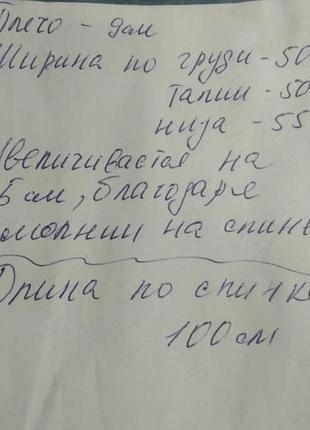 Плечо - 9см
Ширина по груди - 50
талии - 50
низа - 55
Увеличивается на
5 см, благодаря
молнии на спинке
Длина по спинке
100 см